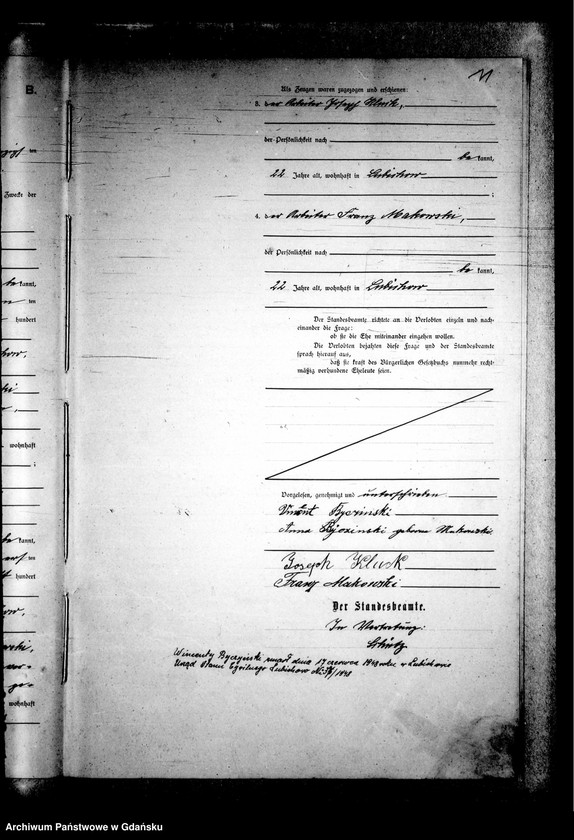 11
B.
ten
Zwecke der
kannt,
ten
hundert
wohnhaft
;
kannt,
ten
hundert
wohnhaft
Als Zeugen waren zugezogen und erschienen:
3. der Arbeiter Joseph Klucik,
der Persönlichkeit nach
be kannt,
22 Jahre alt, wohnhaft in Lubichow
;
4. der Arbeiter Franz Makowski,
der Persönlichkeit nach
be kannt,
22 Jahre alt, wohnhaft in Lubichow
Der Standesbeamte richtete an die Verlobten einzeln und nach-
einander die Frage:
ob sie die Ehe miteinander eingehen wollen.
Die Verlobten bejahten diese Frage und der Standesbeamte
sprach hierauf aus,
daß sie kraft des Bürgerlichen Gesetzbuchs nunmehr recht-
mäßig verbundene Eheleute seien.
Vorgelesen, genehmigt und unterschrieben
Vincent Byczinski
Anna Byczinski geborene Makowski
Joseph
Franz Makowski
Der Standesbeamte.
In Vertretung:
Wincenty Byczyński zmarł dnia 17 czerwca 1948 roku w Lubichowie
Urząd Stanu Cywilnego Lubichowo Nr /1948
Archiwum Państwowe w Gdańsku